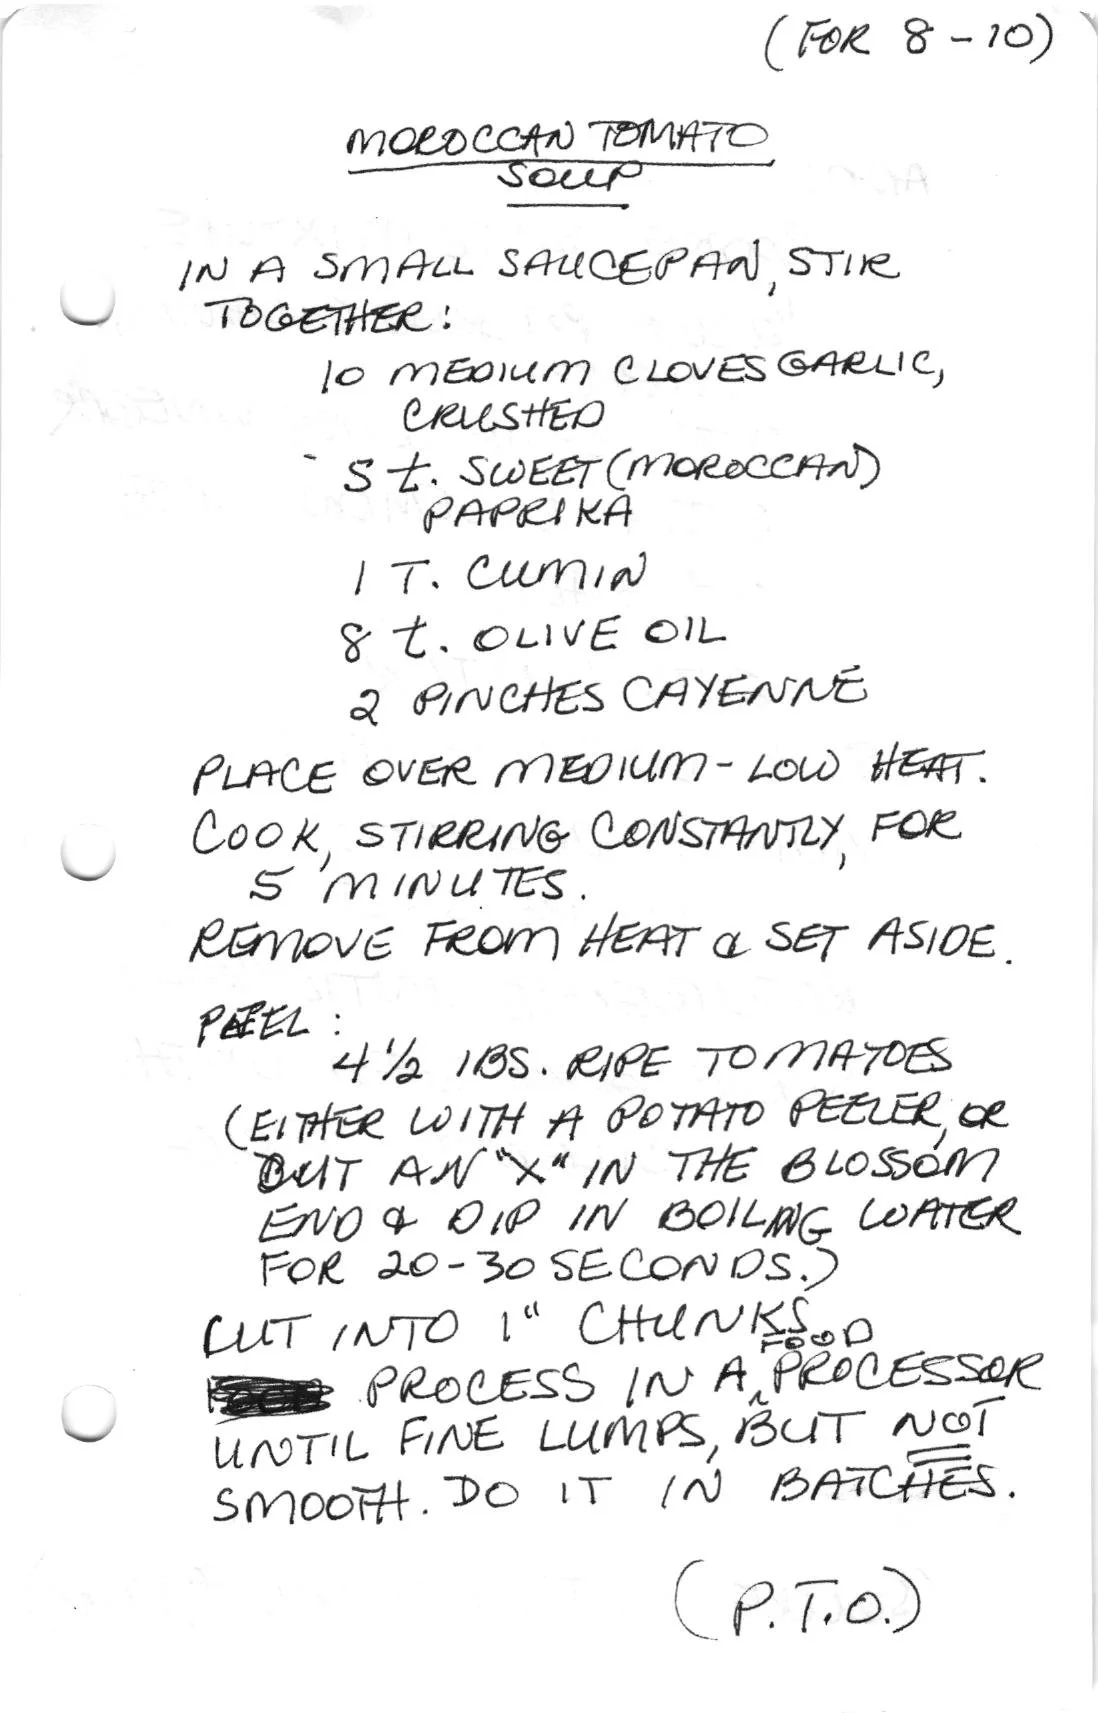 (FOR 8-10)
MOROCCAN TOMATO
SOUP
IN A SMALL SAUCEPAN, STIR
TOGETHER:
10 MEDIUM CLOVES GARLIC,
CRUSHED
5 t. SWEET (MOROCCAN)
PAPRIKA
1 T. CUMIN
8 t. OLIVE OIL
2 PINCHES CAYENNE
PLACE OVER MEDIUM-LOW HEAT.
COOK, STIRRING CONSTANTLY, FOR
5 MINUTES.
REMOVE FROM HEAT & SET ASIDE.
PEEL:
4 1/2 lBS. RIPE TOMATOES
(EITHER WITH A POTATO PEELER, OR
CUT AN "X" IN THE BLOSSOM
END & DIP IN BOILING WATER
FOR 20-30 SECONDS.)
CUT INTO 1" CHUNKS.
PROCESS IN A FOOD PROCESSOR
UNTIL FINE LUMPS, BUT NOT
SMOOTH. DO IT IN BATCHES.
(P.T.O.)